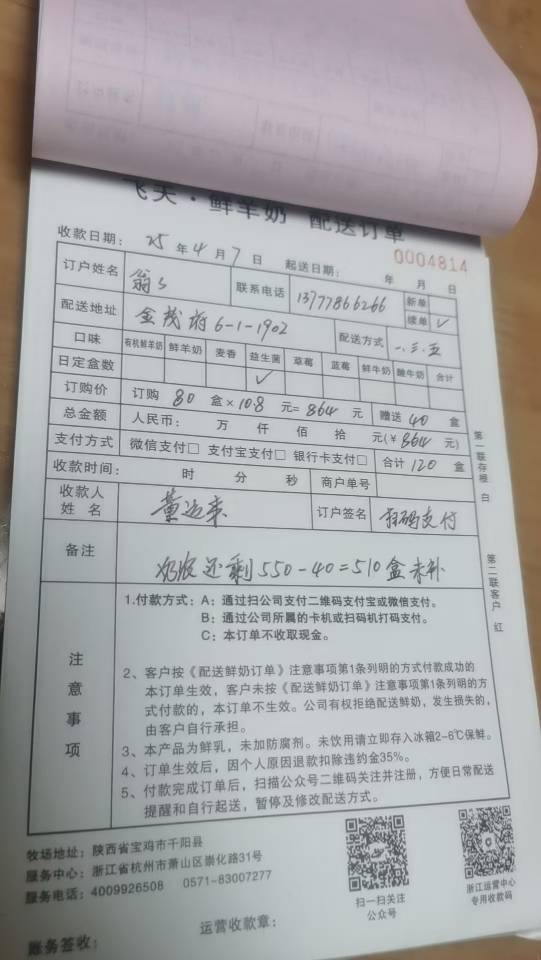 飞天·鲜羊奶 配送订单
收款日期: 25 年 4 月 7 日 起送日期: 年 月 日
0004814
订户姓名 联系电话 13777866266 新单
续单 ✓
配送地址 金茂府6-1-1902 配送方式 一.三.五
口味 有机鲜羊奶 鲜羊奶 麦香 益生菌 草莓 蓝莓 鲜牛奶 酸牛奶 合计
日定盒数 ✓
订购价 订购 80 盒×108 元= 864 元 赠送 40 盒
总金额 人民币: 万 仟 佰 拾 元(¥ 864 元)
支付方式 微信支付□ 支付宝支付□ 银行卡支付□ 合计 120 盒
收款时间: 时 分 秒 商户单号
收款人姓名 订户签名 扫码支付
备注 奶版还剩550-40=510盒未补
第一联存根 白
第二联客户 红
注意事项
1.付款方式: A: 通过扫公司支付二维码支付宝或微信支付。
B: 通过公司所属的卡机或扫码机打码支付。
C: 本订单不收取现金。
2、客户按《配送鲜奶订单》注意事项第1条列明的方式付款成功的
本订单生效, 客户未按《配送鲜奶订单》注意事项第1条列明的方
式付款的, 本订单不生效。公司有权拒绝配送鲜奶, 发生损失的,
由客户自行承担。
3、本产品为鲜乳, 未加防腐剂。未饮用请立即存入冰箱2-6℃保鲜。
4、订单生效后, 因个人原因退款扣除违约金35%。
5、付款完成订单后, 扫描公众号二维码关注并注册, 方便日常配送
提醒和自行起送, 暂停及修改配送方式。
牧场地址: 陕西省宝鸡市千阳县
服务中心: 浙江省杭州市萧山区崇化路31号
服务电话: 4009926508 0571-83007277
扫一扫关注
公众号
浙江运营中心
专用收款码
运营收款章:
账务签收: